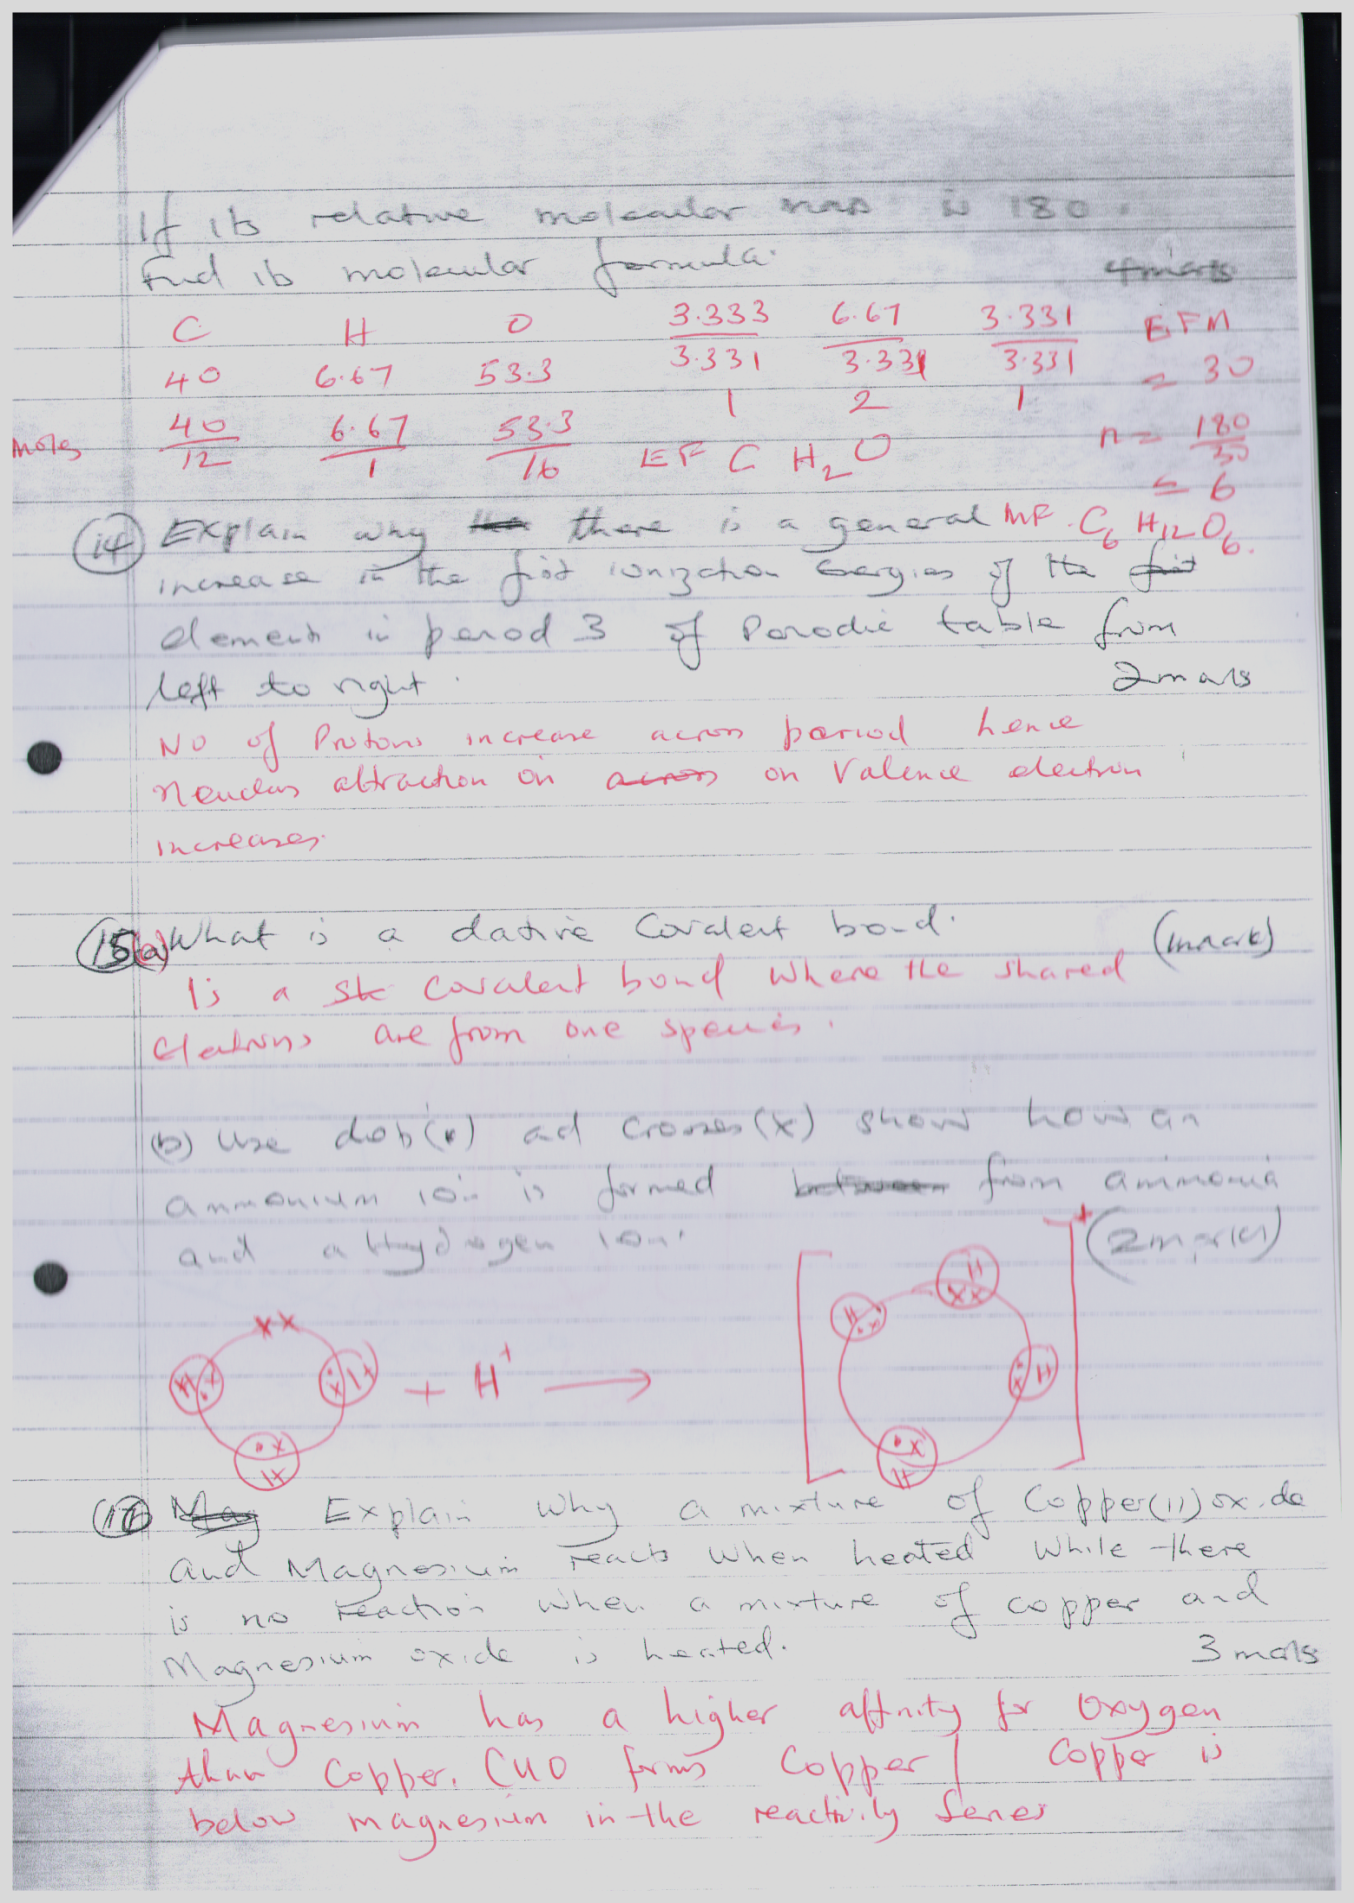 If its relative molecular mass is 180.
Find its molecular formula. 4marks
C H O 3.333 6.67 3.331 EFM
40 6.67 53.3 3.331 3.331 3.331 = 30
1 2 1
moles 40/12 6.67/1 53.3/16 EF C H2O n= 180/30
= 6
(14) Explain why there is a general MF. C6 H12O6.
increase in the first ionization energies of the
element in period 3 of Periodic table from
left to right. 2marks
No of Protons increase across period hence
attraction on on Valence electron
increases.
(15(a) What is a dative Covalent bond. (1mark)
Is a Covalent bond Where the shared
Electrons are from one species.
(b) Use dots(•) and crosses(x) show how an
ammonium ion is formed from ammonia
and a Hydrogen ion. (2marks)
xx H +
H x H x + H+ → H xx x H
x H x H
Explain why a mixture of Copper(II) oxide
and Magnesium reacts when heated while there
is no reaction when a mixture of copper and
Magnesium oxide is heated. 3 marks
Magnesium has a higher affinity for Oxygen
than Copper. CuO forms Copper / Copper is
below magnesium in the reactivity Series